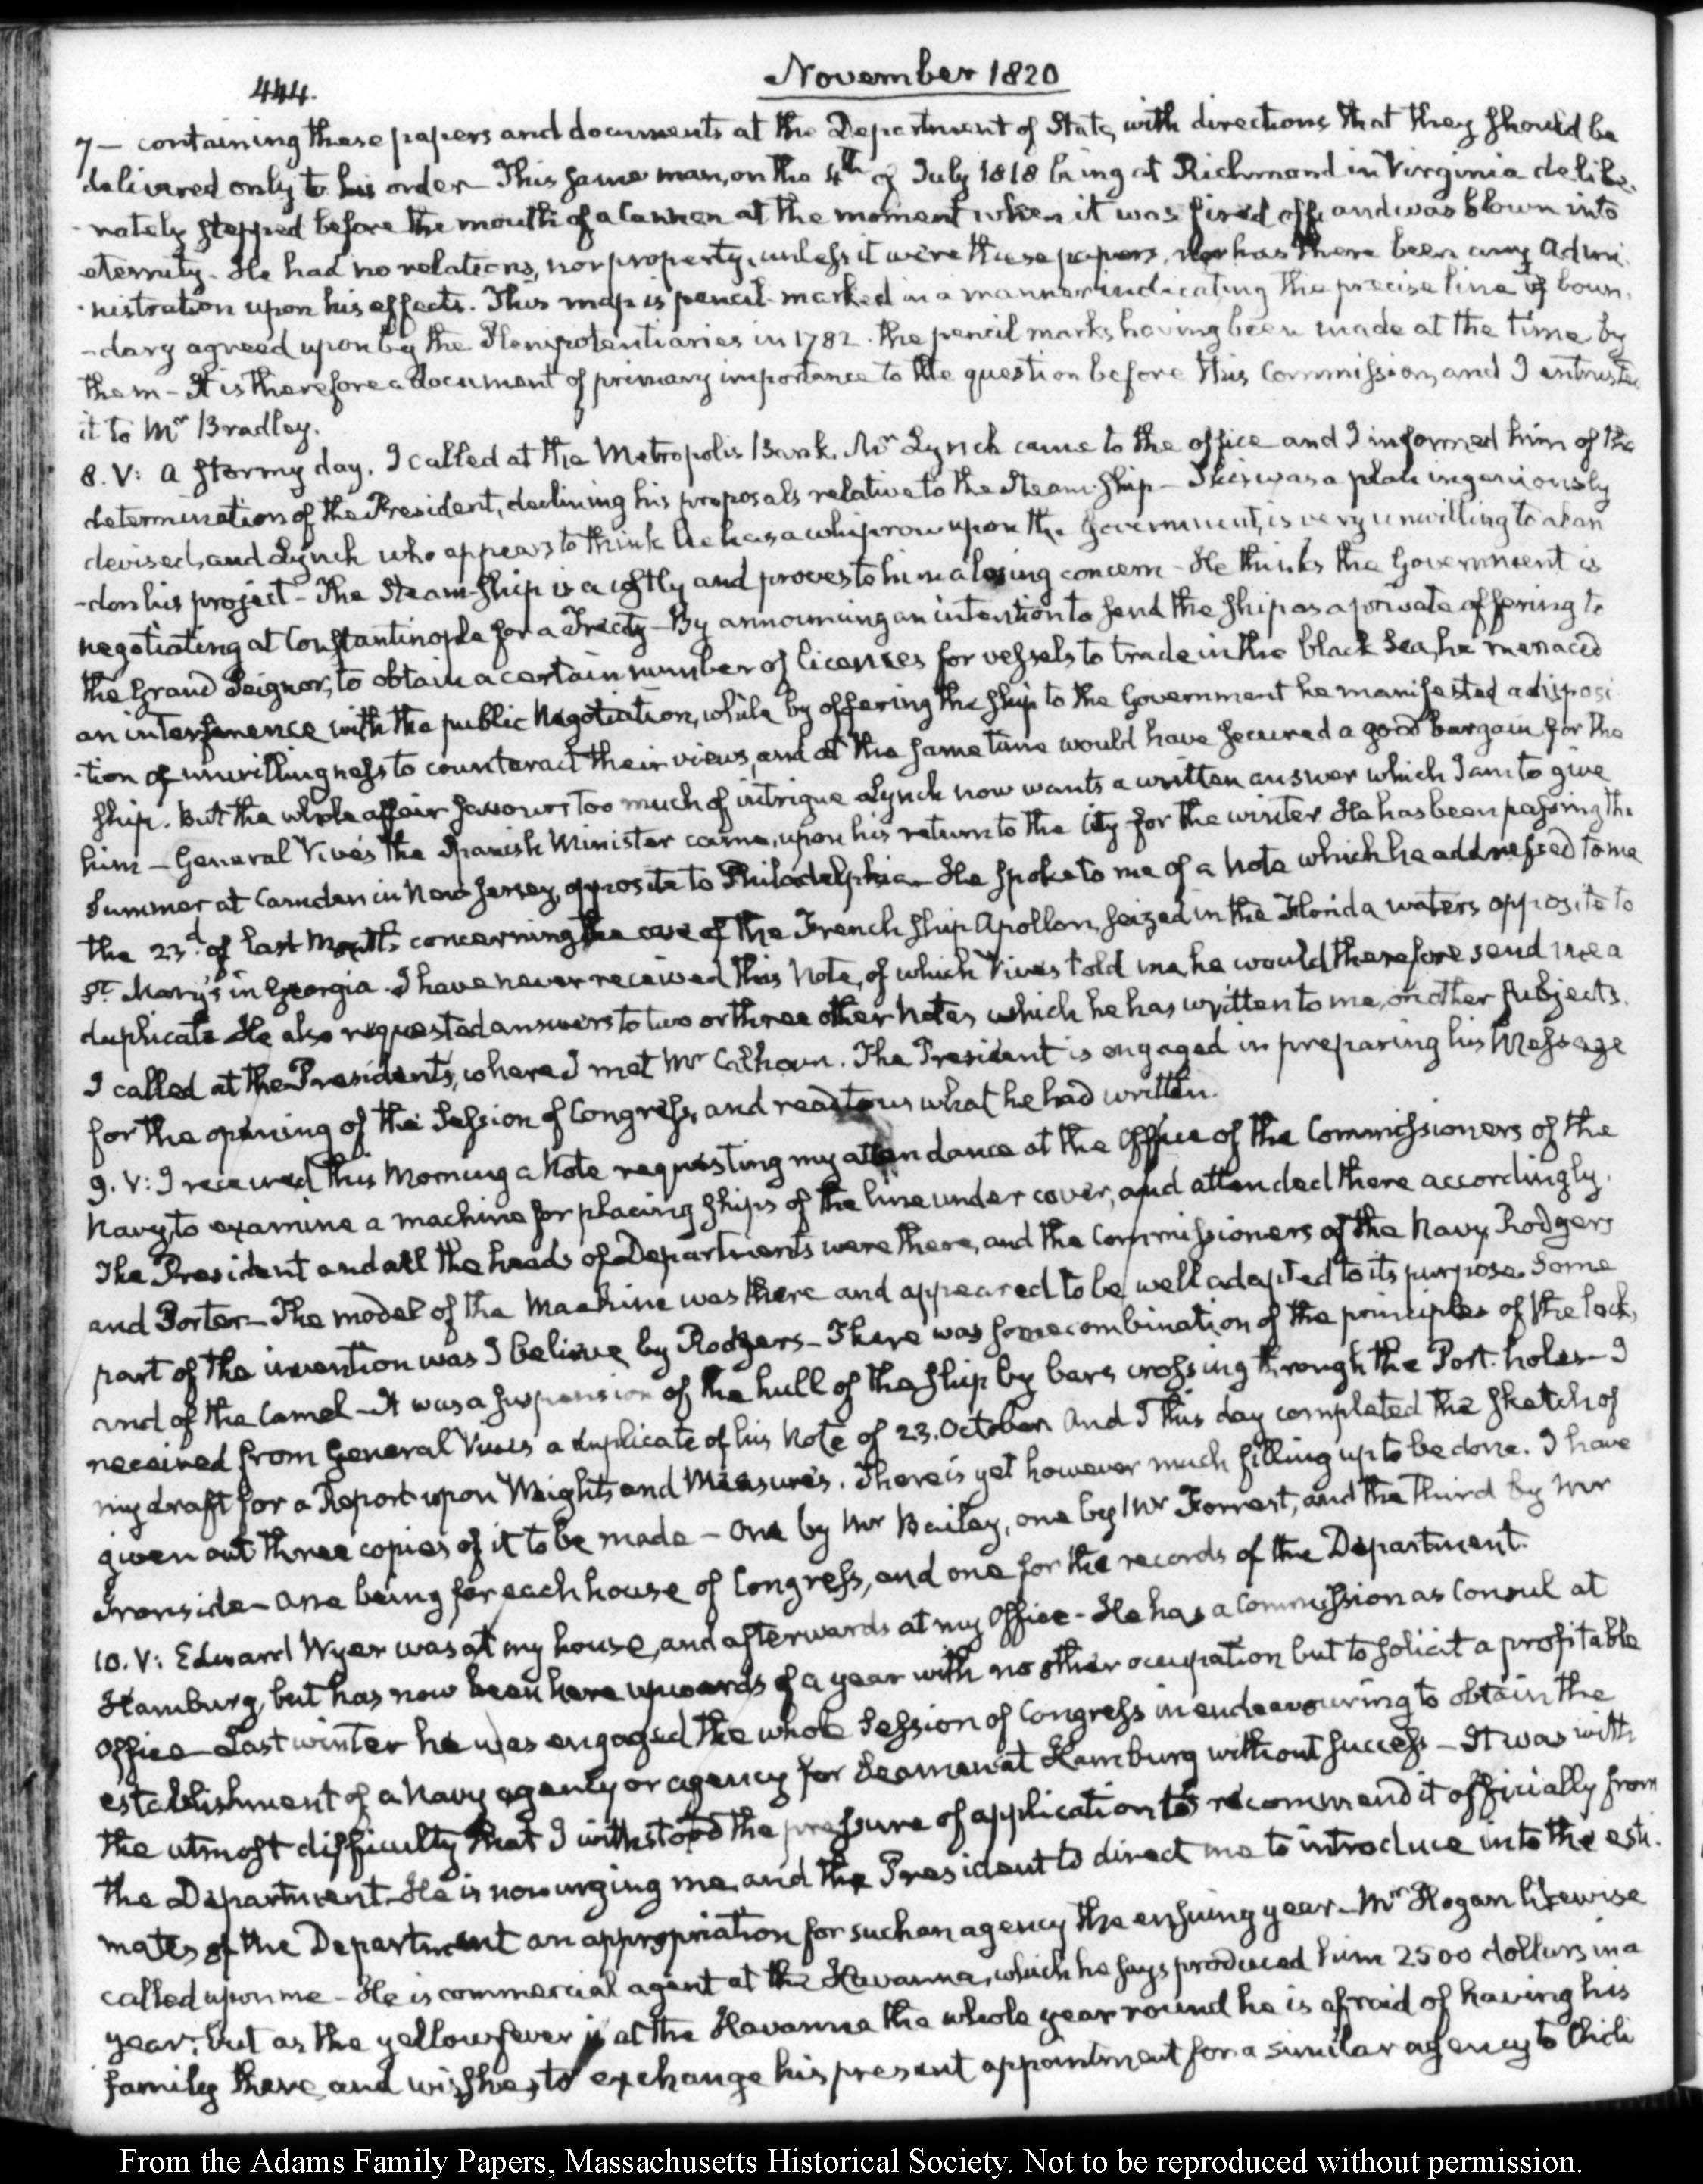 444.
November 1820
7 — containing these papers and documents at the Department of State, with directions that they should be
delivered only to his order — This same man, on the 4th of July 1818 being at Richmond in Virginia delibe-
-rately stepped before the mouth of a Cannon at the moment when it was fired off, and was blown into
eternity. He had no relations, nor property, unless it were these papers, nor has there been any Admi-
-nistration upon his effects. This map is pencil-marked in a manner indicating the precise line of boun-
-dary agreed upon by the Plenipotentiaries in 1782. the pencil marks having been made at the time by
them — It is therefore a document of primary importance to the question before this Commission, and I entrusted
it to Mr Bradley.
8. V: A stormy day. I called at the Metropolis Bank. Mr Lynch came to the office and I informed him of the
determination of the President, declining his proposals relative to the Steam-Ship — This was a plan ingeniously
devised, and Lynch who appears to think he has a whiprow upon the Government, is very unwilling to aban
-don his project — The Steam-Ship is a costly and proves to him a losing concern — He thinks the Government is
negotiating at Constantinople for a Treaty — By announcing an intention to send the ship as a private offering to
the Grand Seignor, to obtain a certain number of licenses for vessels to trade in the black Sea, he menaced
an interference with the public Negotiation, while by offering the ship to the Government he manifested a disposi
-tion of unwillingness to counteract their views, and at the same time would have secured a good bargain for the
ship. But the whole affair savours too much of intrigue Lynch now wants a written answer which I am to give
him — General Vivés the Spanish Minister came, upon his return to the City for the winter He has been passing the
Summer at Camden in New Jersey, opposite to Philadelphia — He spoke to me of a Note which he addressed to me
the 23d of last Month concerning the case of the French Ship Apollon, seized in the Florida waters opposite to
St Mary's in Georgia. I have never received this Note, of which Vivés told me, he would therefore send me a
duplicate He also requested answers to two or three other Notes which he has written to me, on other subjects.
I called at the President's, where I met Mr Calhoun. The President is engaged in preparing his Message
for the opening of the Session of Congress, and read to us what he had written.
9. V: I received this Morning a Note requesting my attendance at the Office of the Commissioners of the
Navy, to examine a machine for placing ships of the line under cover, and attended there accordingly.
The President and all the heads of Departments were there, and the Commissioners of the Navy, Rodgers
and Porter — The model of the Machine was there and appeared to be well adapted to its purpose. Some
part of the invention was I believe by Rodgers — There was some combination of the principles of the lock,
and of the Camel — It was a suspension of the hull of the ship by bars crossing through the Port-holes — I
received from General Vivés a duplicate of his Note of 23. October. And I this day completed the sketch of
my draft for a Report upon Weights and Measures. There is yet however much filling up to be done. I have
given out three copies of it to be made — One by Mr Bailey, one by Mr Forrest, and the third by Mr
Ironside — One being for each house of Congress, and one for the records of the Department.
10. V: Edward Wyer was at my house, and afterwards at my Office — He has a Commission as Consul at
Hamburg, but has now been here upwards of a year with no other occupation but to solicit a profitable
Office — Last winter he was engaged the whole Session of Congress in endeavouring to obtain the
establishment of a Navy agency or agency for Seamen at Hamburg without success — It was with
the utmost difficulty that I withstood the pressure of application to recommend it officially from
the Department — He is now urging me and the President to direct me to introduce into the esti-
mates of the Department an appropriation for such an agency the ensuing year — Mr Hogan likewise
called upon me — He is commercial agent at the Havanna, which he says produced him 2500 dollars in a
year; but as the yellow fever is at the Havanna the whole year round he is afraid of having his
family there, and wishes to exchange his present appointment for a similar agency to Chili
From the Adams Family Papers, Massachusetts Historical Society. Not to be reproduced without permission.